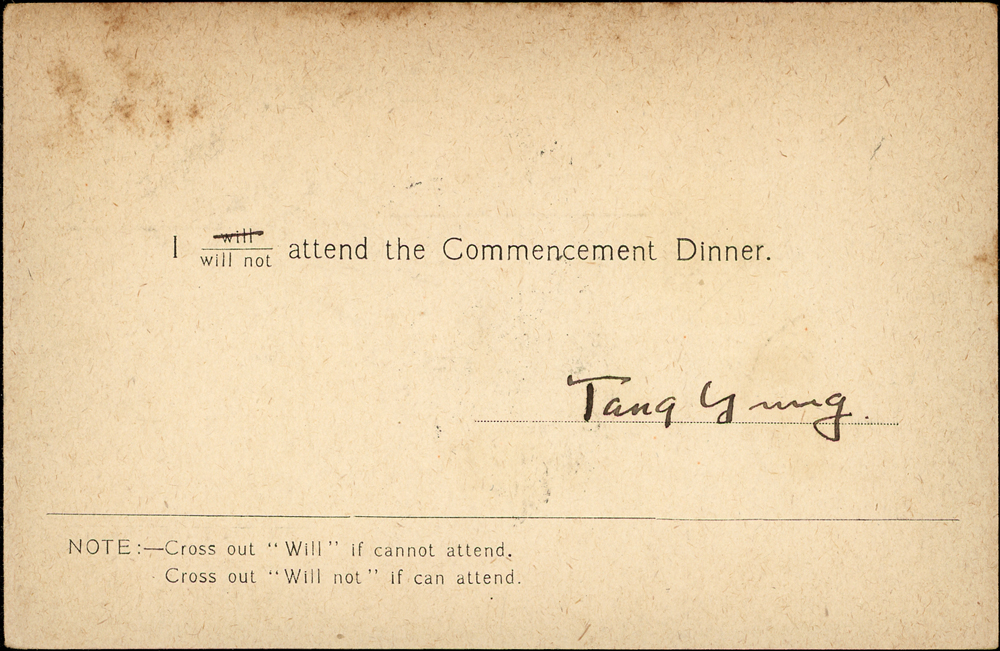 I will attend the Commencement Dinner.
will not
Tang Yung.
NOTE:—Cross out "Will" if cannot attend.
Cross out "Will not" if can attend.